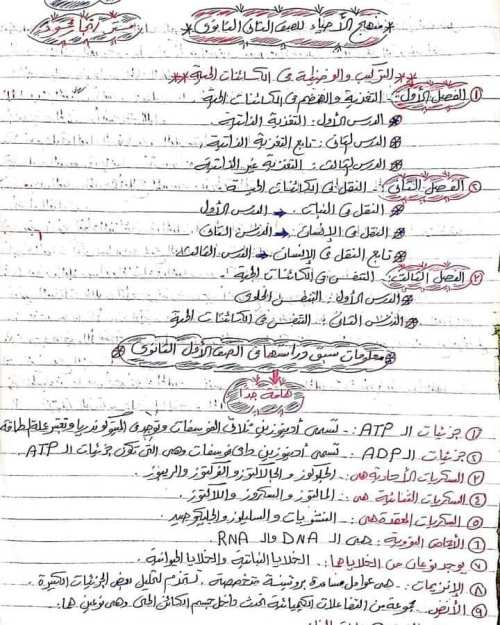 منهج الأحياء للصف الثانى الثانوى
مستر /
** التركيب والوظيفة فى الكائنات الحية **
① الفصل الأول :- التغذية والهضم فى الكائنات الحية
الدرس الأول : التغذية الذاتية
الدرس الثانى : تابع التغذية الذاتية
الدرس الثالث : التغذية غير الذاتية
② الفصل الثانى : النقل فى الكائنات الحية
النقل فى النبات ← الدرس الأول
النقل فى الإنسان ← الدرس الثانى
تابع النقل فى الإنسان ← الدرس الثالث
③ الفصل الثالث :- التنفس فى الكائنات الحية
الدرس الأول : التنفس الخلوى
الدرس الثانى : التنفس فى الكائنات الحية
معلومات سبق دراستها فى الصف الأول الثانوى
هامة جدا
① جزيئات الـ ATP :- تسمى أدينوزين ثلاثى الفوسفات وتوجد فى الميتوكوندريا وتعتبر عملة الطاقة
② جزيئات الـ ADP :- تسمى أدينوزين ثنائى فوسفات وهى التى تكون جزيئات الـ ATP
③ السكريات الأحادية هى : الجلوكوز والجالاكتوز والفركتوز والريبوز .
④ السكريات الثنائية هى : المالتوز والسكروز واللاكتوز .
⑤ السكريات المعقدة هى : النشويات والسليلوز والجليكوجين .
⑥ الأحماض النووية : هى الـ DNA والـ RNA
⑦ يوجد نوعان من الخلايا هما : الخلايا النباتية والخلايا الحيوانية .
⑧ الإنزيمات :- هى عوامل مساعدة بروتينية متخصصة . تستخدم لتحليل بعض الجزيئات الكبيرة .
⑨ الأيض : مجموعة من التفاعلات الكيميائية تحدث داخل جسم الكائن الحى وهى نوعين هما :